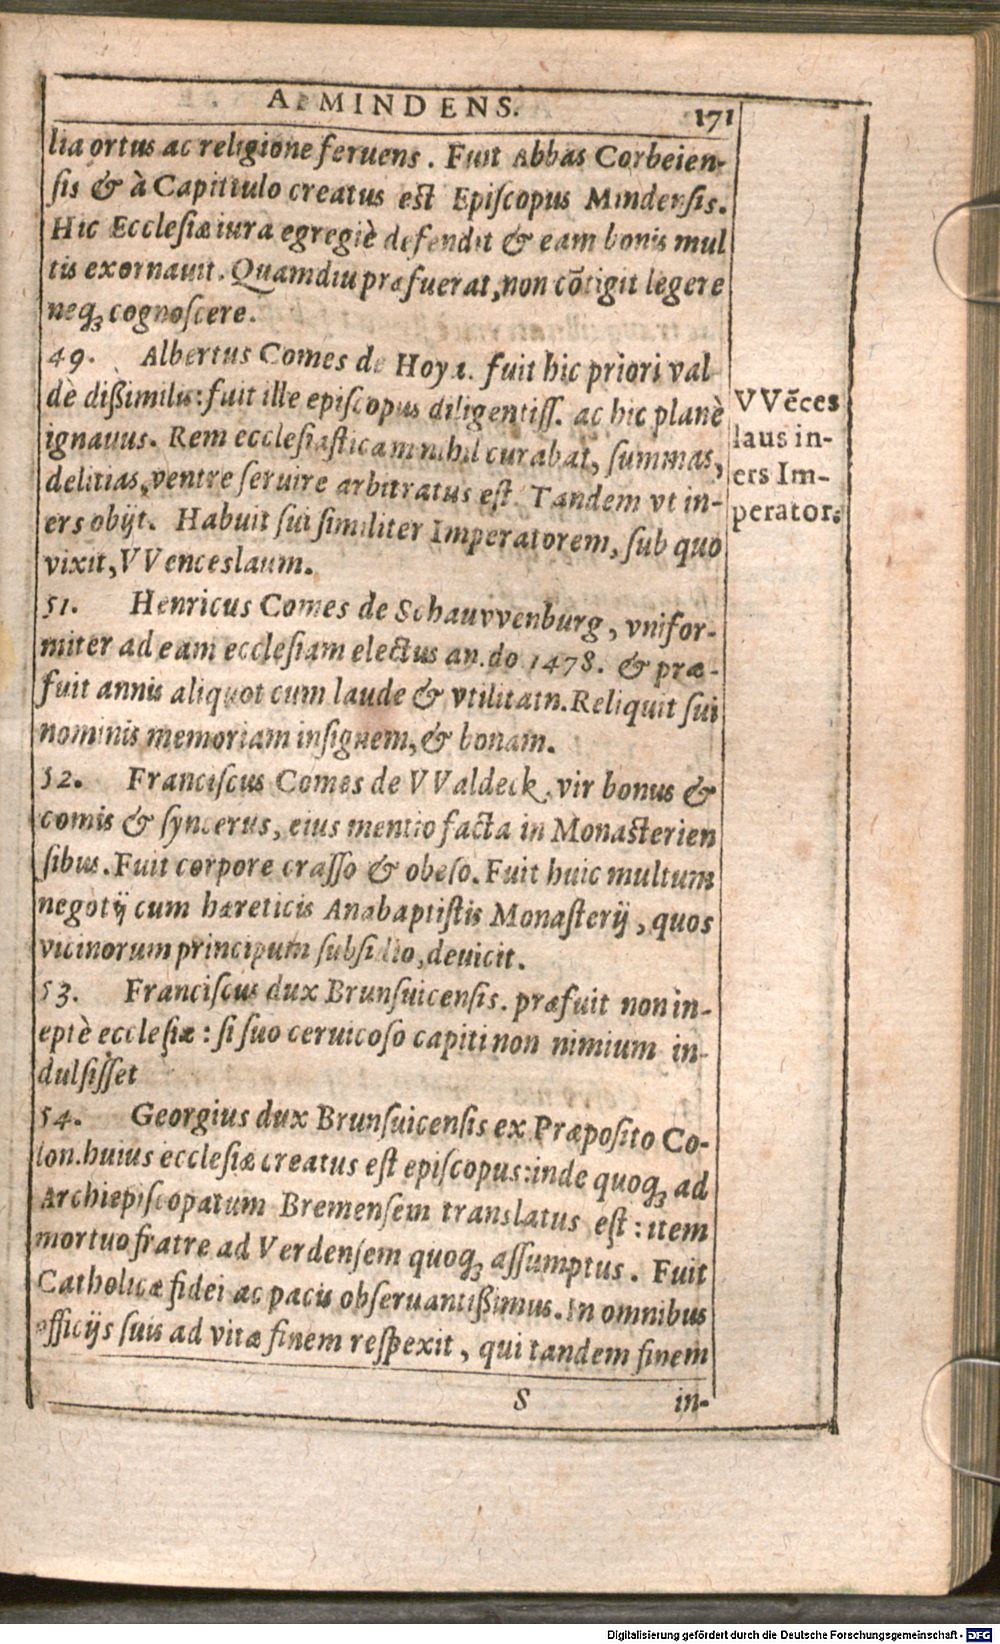 A. MINDENS.
171
lia ortus ac religione feruens. Fuit Abbas Corbeien-
ſis & à Capitulo creatus est Epiſcopus Mindenſis.
Hic Eccleſiæ iura egregiè defendit & eam bonis mul
tis exornauit. Quamdiu præfuerat, non cōtigit legere
neqꝫ cognoſcere.
49. Albertus Comes de Hoya. fuit hic priori val
dè dißimilis: fuit ille epiſcopus diligentiſſ. ac hic planè
ignauus. Rem eccleſiaſticam nihil curabat, ſummas,
delitias, ventre ſeruire arbitratus eſt Tandem vt in-
ers obijt. Habuit ſui ſimiliter Imperatorem, ſub quo
vixit, VVenceslaum.
VVēces
laus in-
ers Im-
perator.
51. Henricus Comes de Schauvvenburg, vnifor-
miter ad eam eccleſiam electus an. do 1478. & præ-
fuit annis aliquot cum laude & vtilitatn. Reliquit ſui
nominis memoriam inſignem, & bonam.
52. Franciſcus Comes de VValdeck, vir bonus &
comis & ſyncerus, eius mentio facta in Monaſterien
ſibus. Fuit corpore craſſo & obeſo. Fuit huic multum
negotij cum hæreticis Anabaptiſtis Monaſterij, quos
vicinorum principum ſubſidio, deuicit.
53. Franciſcus dux Brunſuicenſis. præfuit non in-
eptè eccleſiæ: ſi ſuo ceruicoſo capiti non nimium in-
dulſiſſet
54. Georgius dux Brunſuicenſis ex Præpoſito Co-
lon. huius eccleſiæ creatus eſt epiſcopus: inde quoqꝫ ad
Archiepiſcopatum Bremenſem translatus eſt: item
mortuo fratre ad Verdenſem quoqꝫ aſſumptus. Fuit
Catholicæ fidei ac pacis obſeruantißimus. In omnibus
officijs ſuis ad vitæ finem reſpexit, qui tandem finem
S
in-
Digitalisierung gefördert durch die Deutsche Forschungsgemeinschaft - DFG